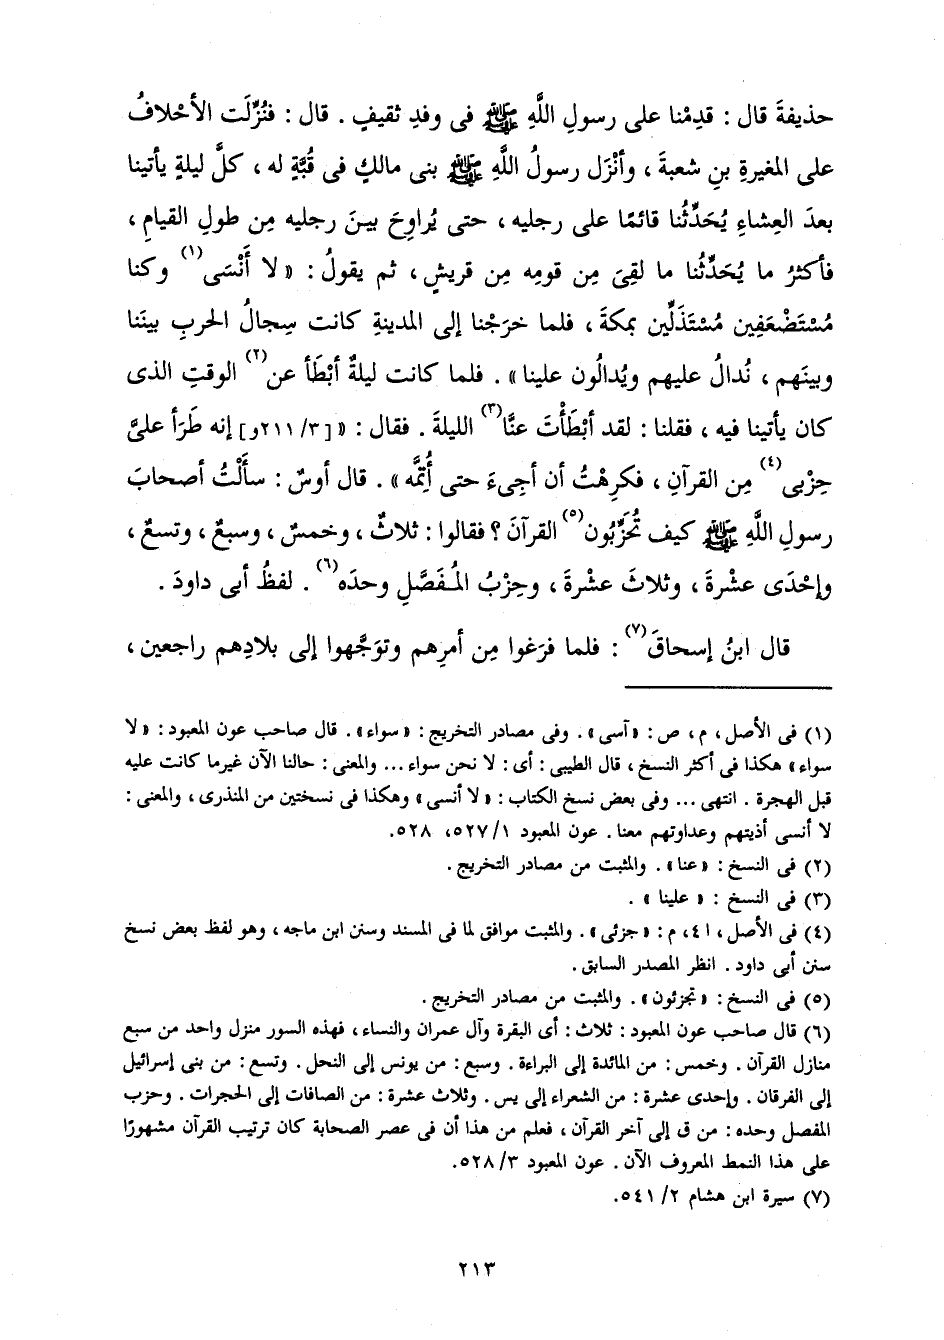 حذيفةَ قال : قدِمْنا على رسولِ اللَّهِ ﷺ فى وفدِ ثقيفٍ . قال : فنُزِّلَت الأحْلافُ
على المغيرةِ بنِ شعبةَ ، وأنْزَل رسولُ اللَّهِ ﷺ بنى مالكٍ فى قُبَّةٍ له ، كلَّ ليلةٍ يأتينا
بعدَ العِشاءِ يُحَدِّثُنا قائمًا على رجليه ، حتى يُراوِحَ بينَ رجليه مِن طولِ القيامِ ،
فأكثرُ ما يُحَدِّثُنا ما لقِىَ مِن قومِه مِن قريشٍ ، ثم يقولُ : « لا أَنْسَى(١) وكنا
مُسْتَضْعَفِين مُسْتَذَلِّين بمكةَ ، فلما خرَجْنا إلى المدينةِ كانت سِجالُ الحربِ بينَنا
وبينَهم ، نُدالُ عليهم ويُدالُون علينا » . فلما كانت ليلةٌ أبْطَأ عن(٢) الوقتِ الذى
كان يأتينا فيه ، فقلنا : لقد أبْطَأْتَ عنَّا(٣) الليلةَ . فقال : « [٣/ ٢١١و] إنه طَرَأ علىَّ
حِزْبى(٤) مِن القرآنِ ، فكرِهْتُ أن أجِىءَ حتى أُتِمَّه » . قال أوسٌ : سأَلْتُ أصحابَ
رسولِ اللَّهِ ﷺ كيف تُحَزِّبُون(٥) القرآنَ ؟ فقالوا : ثلاثٌ ، وخمسٌ ، وسبعٌ ، وتسعٌ ،
وإحْدَى عشْرةَ ، وثلاثَ عشْرةَ ، وحِزْبُ المُفَصَّلِ وحدَه(٦) . لفظُ أبى داودَ .
قال ابنُ إسحاقَ(٧) : فلما فرَغوا مِن أمرِهم وتوَجَّهوا إلى بلادِهم راجعين ،
(١) فى الأصل ، م ، ص : « آسى » . وفى مصادر التخريج : « سواء » . قال صاحب عون المعبود : « لا
سواء » هكذا فى أكثر النسخ ، قال الطيبى : أى : لا نحن سواء ... والمعنى : حالنا الآن غيرما كانت عليه
قبل الهجرة . انتهى ... وفى بعض نسخ الكتاب : « لا أنسى » وهكذا فى نسختين من المنذرى ، والمعنى :
لا أنسى أذيتهم وعداوتهم معنا . عون المعبود ١/ ٥٢٧، ٥٢٨.
(٢) فى النسخ : « عنا » . والمثبت من مصادر التخريج .
(٣) فى النسخ : « علينا » .
(٤) فى الأصل ، ا ٤، م : « جزئى » . والمثبت موافق لما فى المسند وسنن ابن ماجه ، وهو لفظ بعض نسخ
سنن أبى داود . انظر المصدر السابق .
(٥) فى النسخ : « تجزئون » . والمثبت من مصادر التخريج .
(٦) قال صاحب عون المعبود : ثلاث : أى البقرة وآل عمران والنساء ، فهذه السور منزل واحد من سبع
منازل القرآن . وخمس : من المائدة إلى البراءة . وسبع : من يونس إلى النحل . وتسع : من بنى إسرائيل
إلى الفرقان . وإحدى عشرة : من الشعراء إلى يس . وثلاث عشرة : من الصافات إلى الحجرات . وحزب
المفصل وحده : من ق إلى آخر القرآن ، فعلم من هذا أن فى عصر الصحابة كان ترتيب القرآن مشهورًا
على هذا النمط المعروف الآن . عون المعبود ٣/ ٥٢٨.
(٧) سيرة ابن هشام ٢/ ٥٤١.
٢١٣